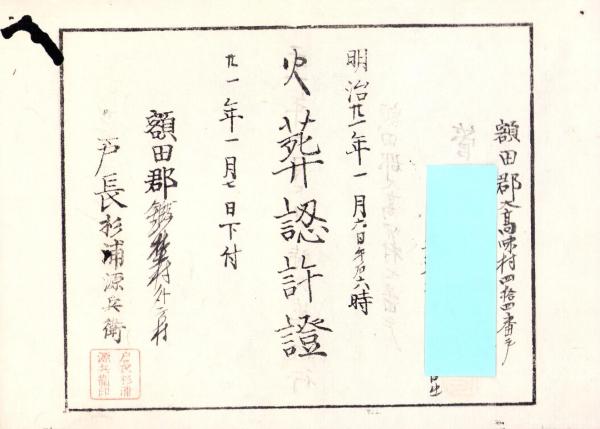 額田郡大高味村四拾四番戸
明治廿一年一月六日午后六時
火葬認許證
廿一年一月七日下付
額田郡 村外 村
戸長杉浦源兵衛
戸長杉浦
源兵衛印